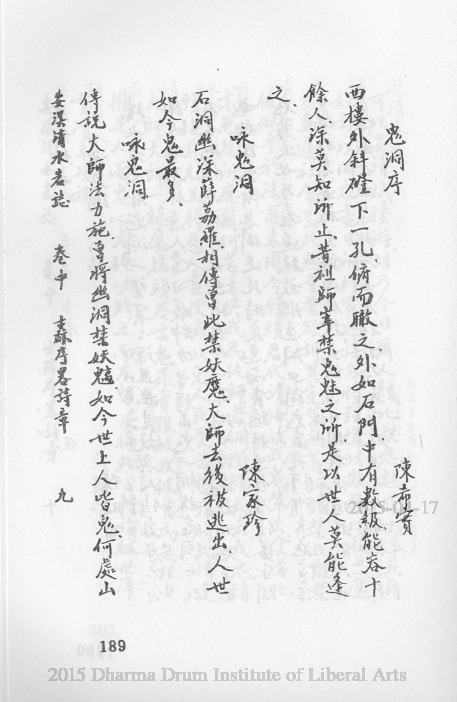 鬼洞序
陳希實
西樓外斜磴下一孔、俯而瞰之外如石門、中有數級、能容十
餘人、深莫知所止、昔祖師牽禁鬼魅之所、是以世人莫能逢
之、
咏鬼洞
陳家珍
石洞幽深薜荔羅、相傳曾此禁妖魔、大師去後被逃出、人世
如今鬼最多、
咏鬼洞
傳說大師法力施、曾將幽洞禁妖魑、如今世上人皆鬼、何處山
安溪清水岩誌 卷中 序畧詩章 九
2015-04-17
189
2015 Dharma Drum Institute of Liberal Arts